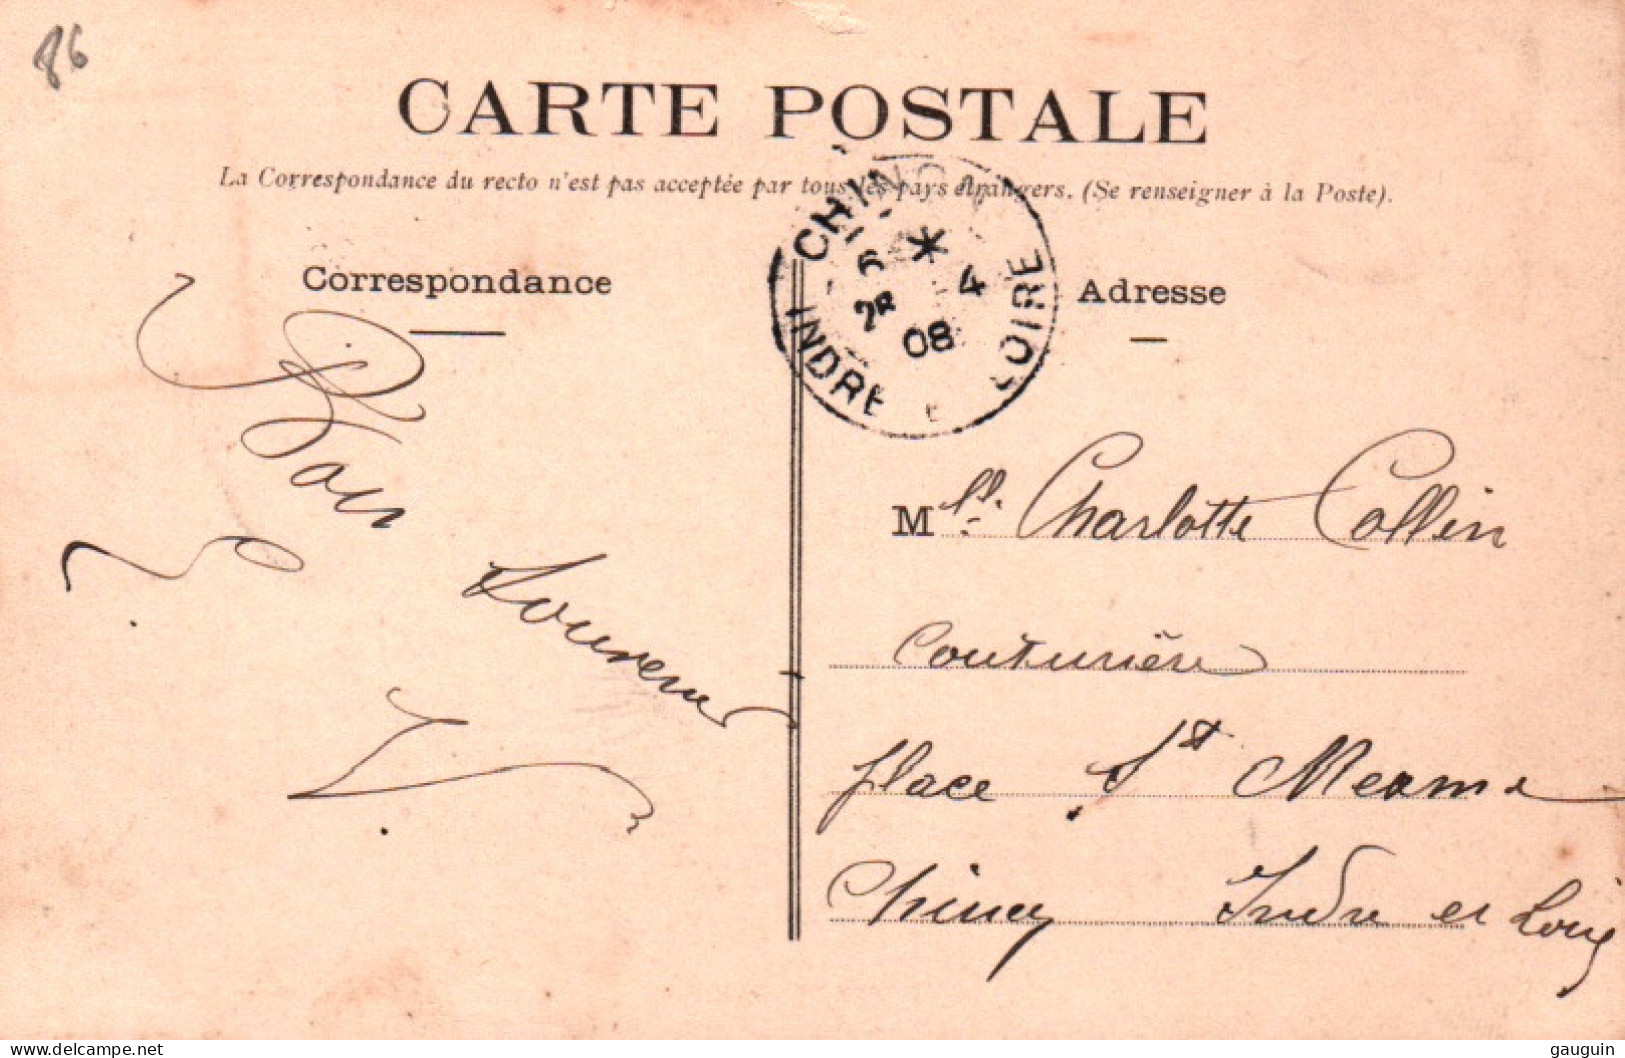 86
CARTE POSTALE
La Correspondance du recto n'est pas acceptée par tous les pays étrangers. (Se renseigner à la Poste).
CHINON
6 * 4
25
08
INDRE E LOIRE
Correspondance
Adresse
Bon
Souvenir
Mlle Charlotte Collin
Couturière
place St Mexme
Chinon Indre et Loire
delcampe.net
gauguin